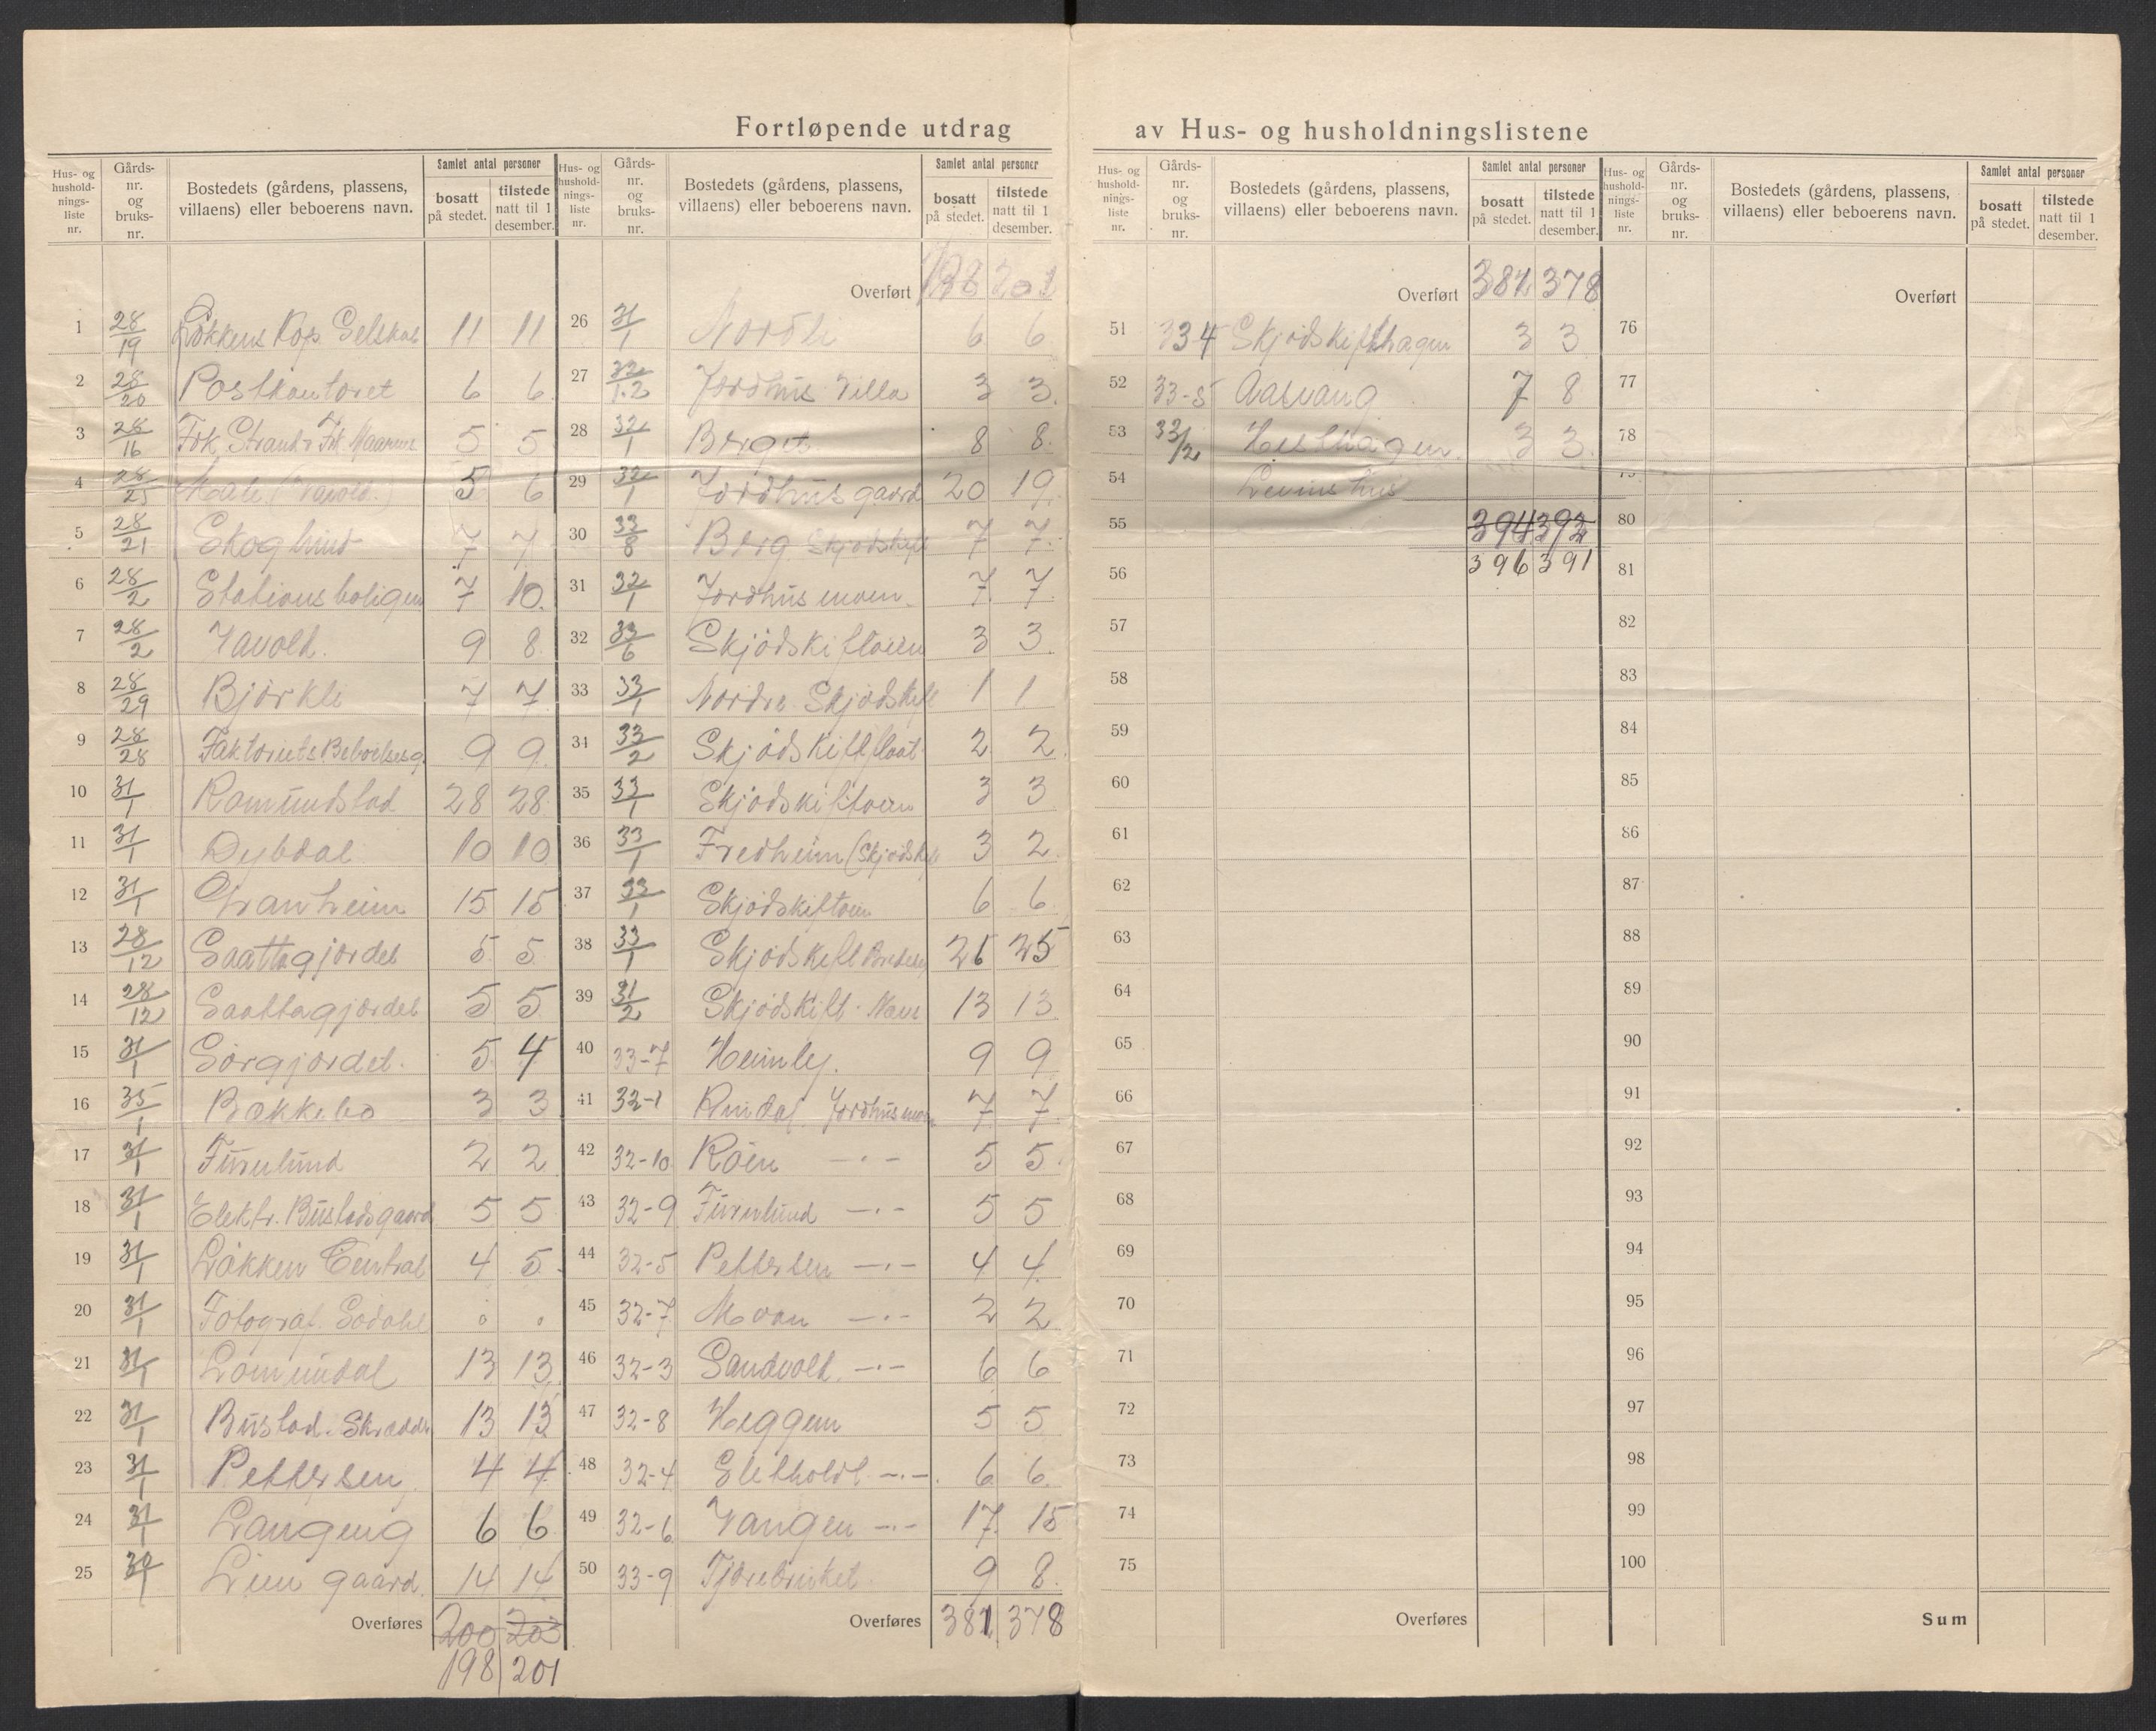 Fortløpende utdrag av Hus- og husholdningslistene
Hus- og husholdnings-liste nr. | Gårds-nr. og bruks-nr. | Bostedets (gårdens, plassens, villaens) eller beboerens navn. | Samlet antal personer | bosatt på stedet. | tilstede natt til 1 desember.
1 28/19 Løkkens Kop. Selskab 11 11
2 28/20 Postkontoret 6 6
3 28/16 Frk. Strand 5 5
4 28/25 5 6
5 28/21 Skoglund 7 7
6 28/2 Stationsboligen 7 10
7 28/2 Vavold. 9 8
8 28/29 Bjørkli 7 7
9 28/28 9 9
10 31/1 Romundstad 28 28
11 31/1 Dybdal 10 10
12 31/1 Granheim 15 15
13 28/12 Saattagjordet 5 5
14 28/12 Saattagjordet 5 5
15 31/1 Sørgjordet. 5 4
16 35/1 Bækkebo 3 3
17 31/1 Furulund 2 2
18 31/1 Elektr. Bustadsgaard 5 5
19 31/1 Løkken Central 4 5
20 31/1 Fotograf. Sødahl 0 0
21 31/1 Lomundal 13 13
22 31/1 Bustad. Skrædder 13 13
23 31/1 Pettersen 4 4
24 31/1 Langeng 6 6
25 Lien gaard. 14 14
Overføres 200 203
198 201
Hus- og husholdnings-liste nr. | Gårds-nr. og bruks-nr. | Bostedets (gårdens, plassens, villaens) eller beboerens navn. | Samlet antal personer | bosatt på stedet. | tilstede natt til 1 desember.
Overført 198 201
26 31/1 Nordli 6 6
27 32/1.2 Jordhus Villa 3 3
28 32/1 Berget 8 8
29 32/1 Jordhusgaard 20 19
30 33/8 Berg Skjødskift 7 7
31 32/1 Jordhusmoen. 7 7
32 33/6 Skjødskiftøien 3 3
33 33/1 Nordre Skjødskift 1 1
34 33/2 2 2
35 33/1 Skjødskiftøien 3 3
36 33/1 Fredheim (Skjødskift 3 2
37 33/1 Skjødskiftøien 6 6
38 33/1 Skjødskift 25
39 31/2 Skjødskift 13 13
40 33-7 Heimly. 9 9
41 32-1 Rindal. Jordhusmoen 7 7
42 32-10 Røen —·- 5 5
43 32-9 Furulund —·- 5 5
44 32-5 Pettersen —·- 4 4
45 32-7 Moan —·- 2 2
46 32-3 Sandvold. —·- 6 6
47 32-8 Heggem 5 5
48 32-4 6 6
49 32-6 Vangen —·- 17 15
50 33-9 9 8
Overføres 381 378
Hus- og husholdnings-liste nr. | Gårds-nr. og bruks-nr. | Bostedets (gårdens, plassens, villaens) eller beboerens navn. | Samlet antal personer | bosatt på stedet. | tilstede natt til 1 desember.
Overført 381 378
51 33 4 Skjødskifthagen 3 3
52 33-5 Aasvang 7 8
53 33/2 3 3
54
55 394 392
56 396 391
57
58
59
60
61
62
63
64
65
66
67
68
69
70
71
72
73
74
75
Overføres
Hus- og husholdnings-liste nr. | Gårds-nr. og bruks-nr. | Bostedets (gårdens, plassens, villaens) eller beboerens navn. | Samlet antal personer | bosatt på stedet. | tilstede natt til 1 desember.
Overført
76
77
78
80
81
82
83
84
85
86
87
88
89
90
91
92
93
94
95
96
97
98
99
100
Sum